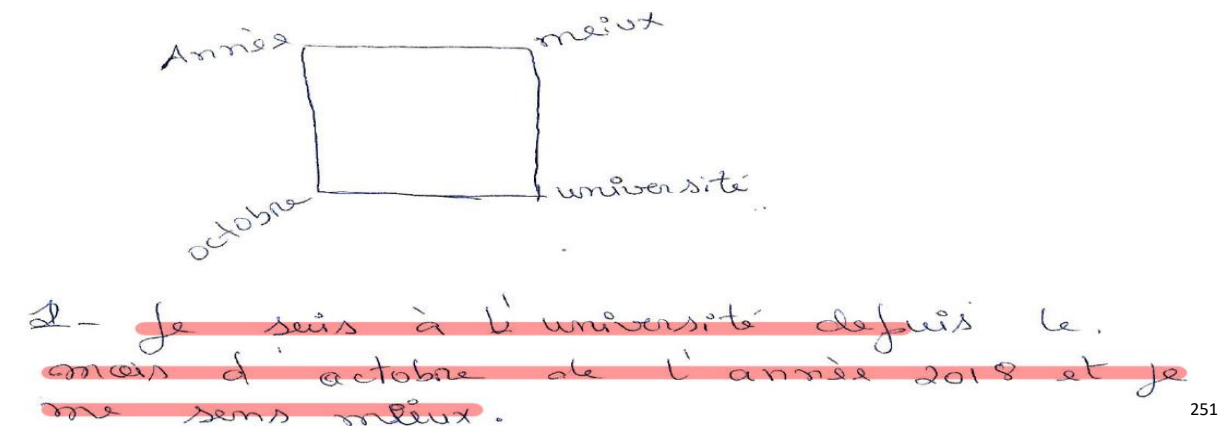 Annèe
meiux
octobre
université
2- Je suis à l'université depuis le.
mois d'octobre de l'annèe 2018 et je
me sens meiux.
251